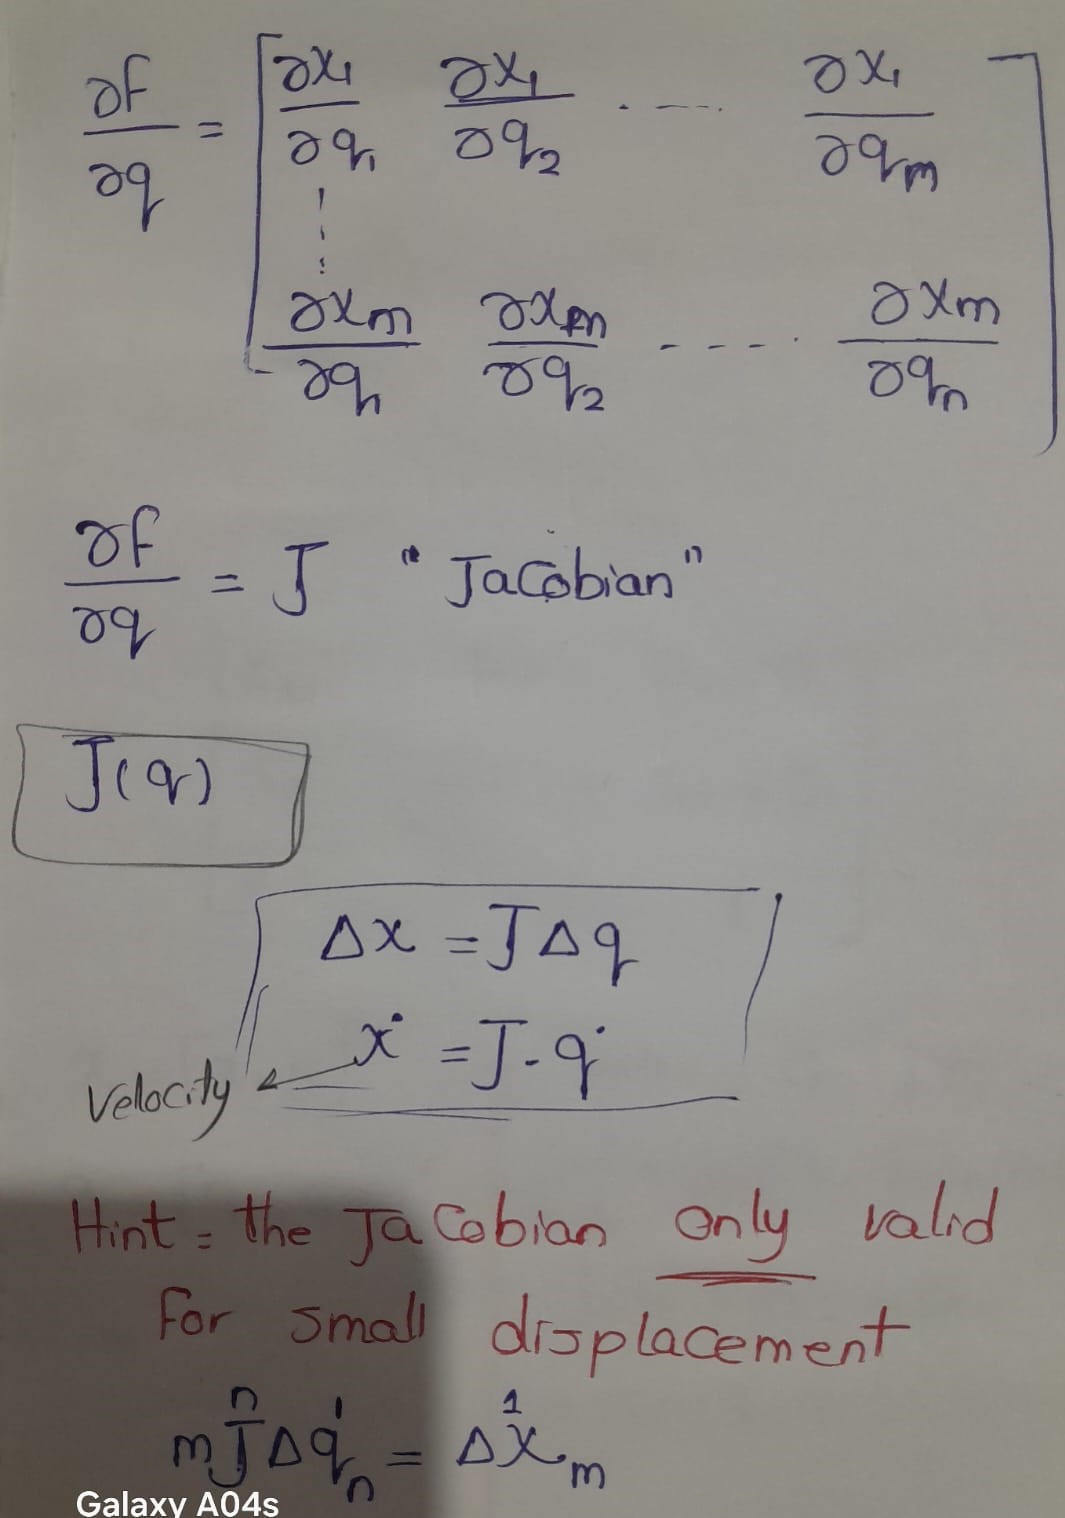 ∂f/∂q = [ ∂x₁/∂q₁ ∂x₁/∂q₂ . ---- ∂x₁/∂qₘ
⋮
∂xₘ/∂q₁ ∂xₘ/∂q₂ ---- . ∂xₘ/∂qₙ ]
∂f/∂q = J "Jacobian"
J(q)
Δx = JΔq
ẋ = J - q̇
Velocity
Hint = the JaCobian only valid
for small displacement
m J n Δq 1 n = Δx 1 m
Galaxy A04s